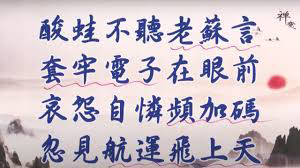 酸蛙不聽老蘇言
套牢電子在眼前
哀怨自憐頻加碼
忽見航運飛上天